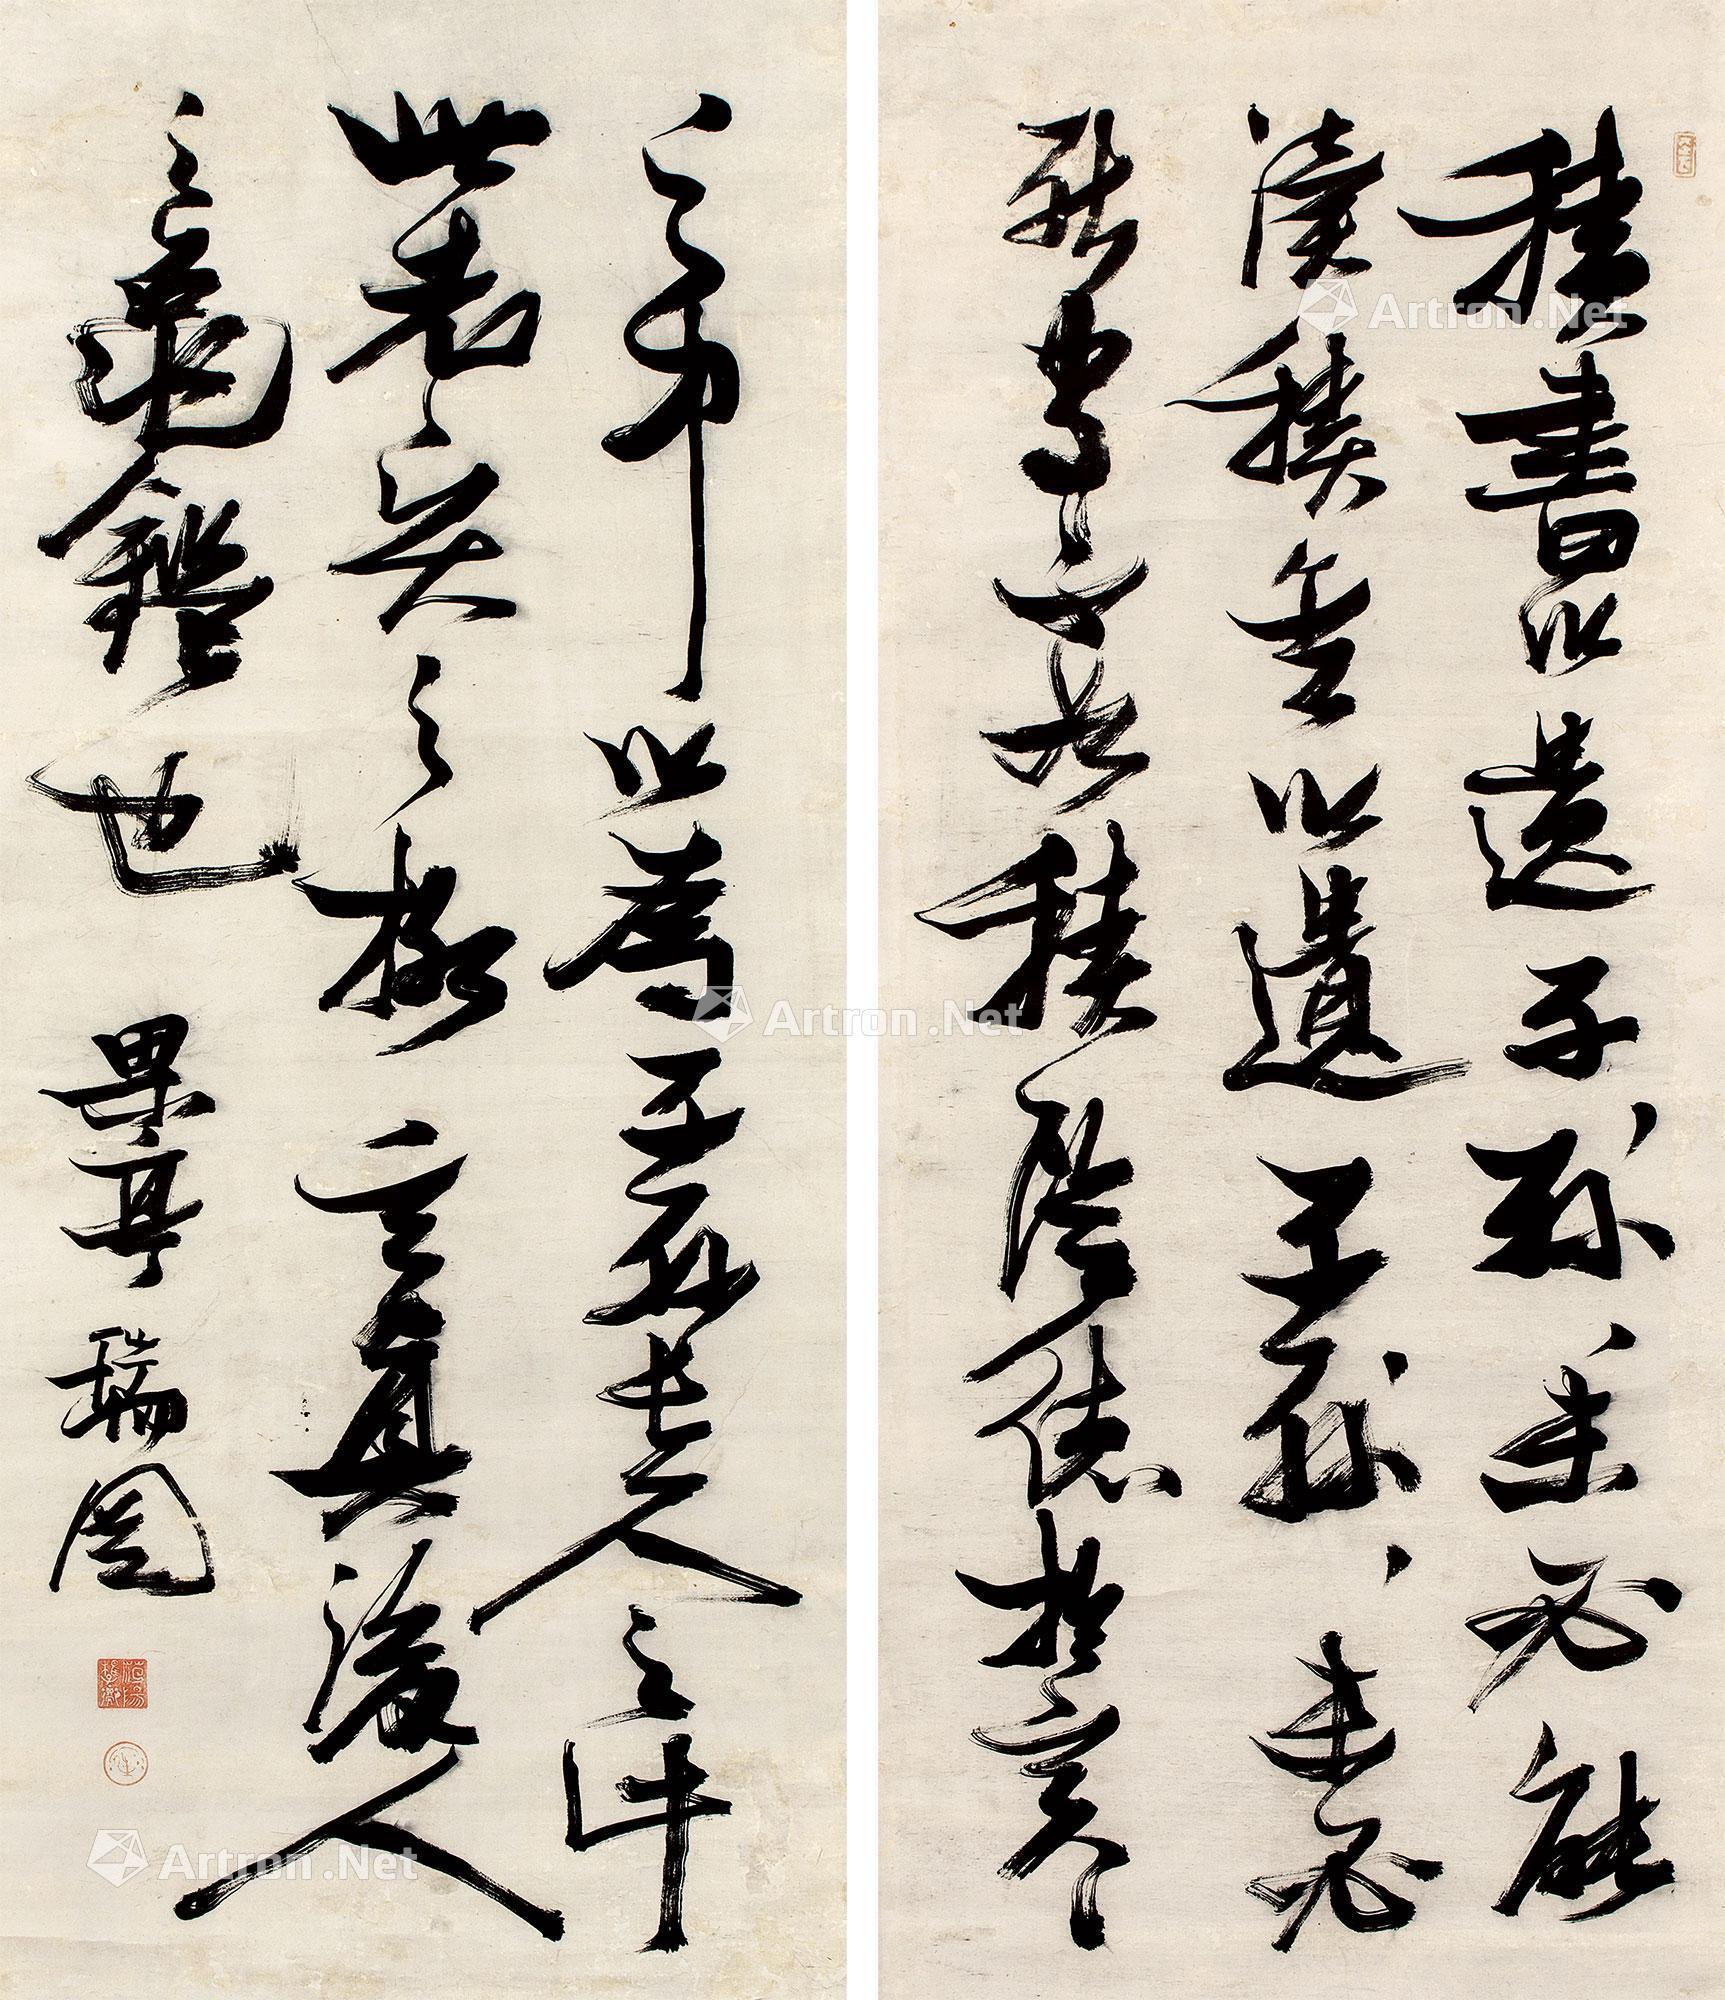 積書以遺子孫未必能
讀積金以遺子孫未必
能守不如積陰德於冥冥
之中以為子孫長久之計
此先賢之格言真後人
之龜鑑也 果亭瑞圖
Artron.Net
Artron.Net
Artron.Net